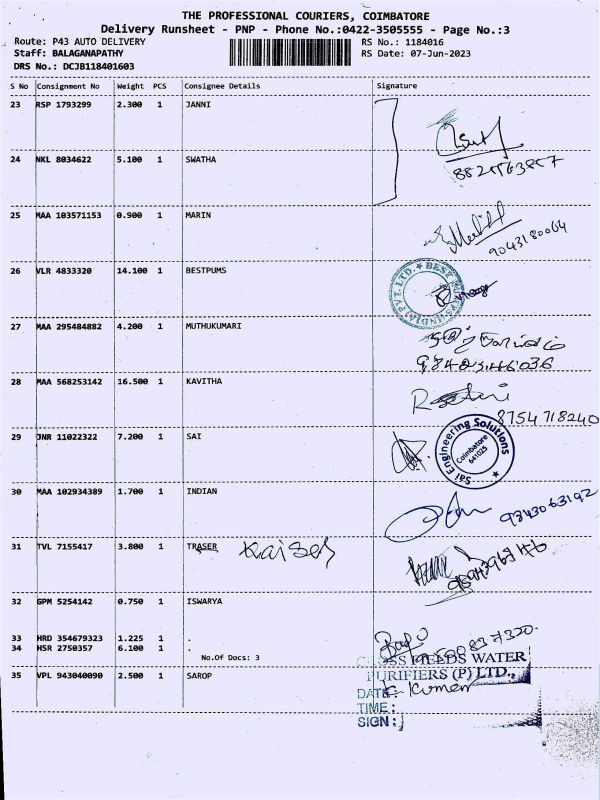 THE PROFESSIONAL COURIERS, COIMBATORE
Delivery Runsheet - PNP - Phone No.:0422-3505555 - Page No.:3
Route: P43 AUTO DELIVERY RS No.: 1184016
Staff: BALAGANAPATHY RS Date: 07-Jun-2023
DRS No.: DCJB118401603
S No Consignment No Weight PCS Consignee Details Signature
23 RSP 1793299 2.300 1 JANNI
24 NKL 8034622 5.100 1 SWATHA
25 MAA 103571153 0.900 1 MARIN
9043180064
26 VLR 4833320 14.100 1 BESTPUMS
27 MAA 295484882 4.200 1 MUTHUKUMARI
28 MAA 568253142 16.500 1 KAVITHA
8754718240
29 JNR 11022322 7.200 1 SAI
Sai Engineering Solutions
Coimbatore
641025
30 MAA 102934389 1.700 1 INDIAN
9843063192
31 TVL 7155417 3.800 1 TRASER Kaiser
32 GPM 5254142 0.750 1 ISWARYA
33 HRD 354679323 1.225 1 .
34 HSR 2750357 6.100 1 .
No.Of Docs: 3
WATER
PURIFIERS (P) LTD.,
35 VPL 943040090 2.500 1 SAROP
DATE: Kumar
TIME:
SIGN: